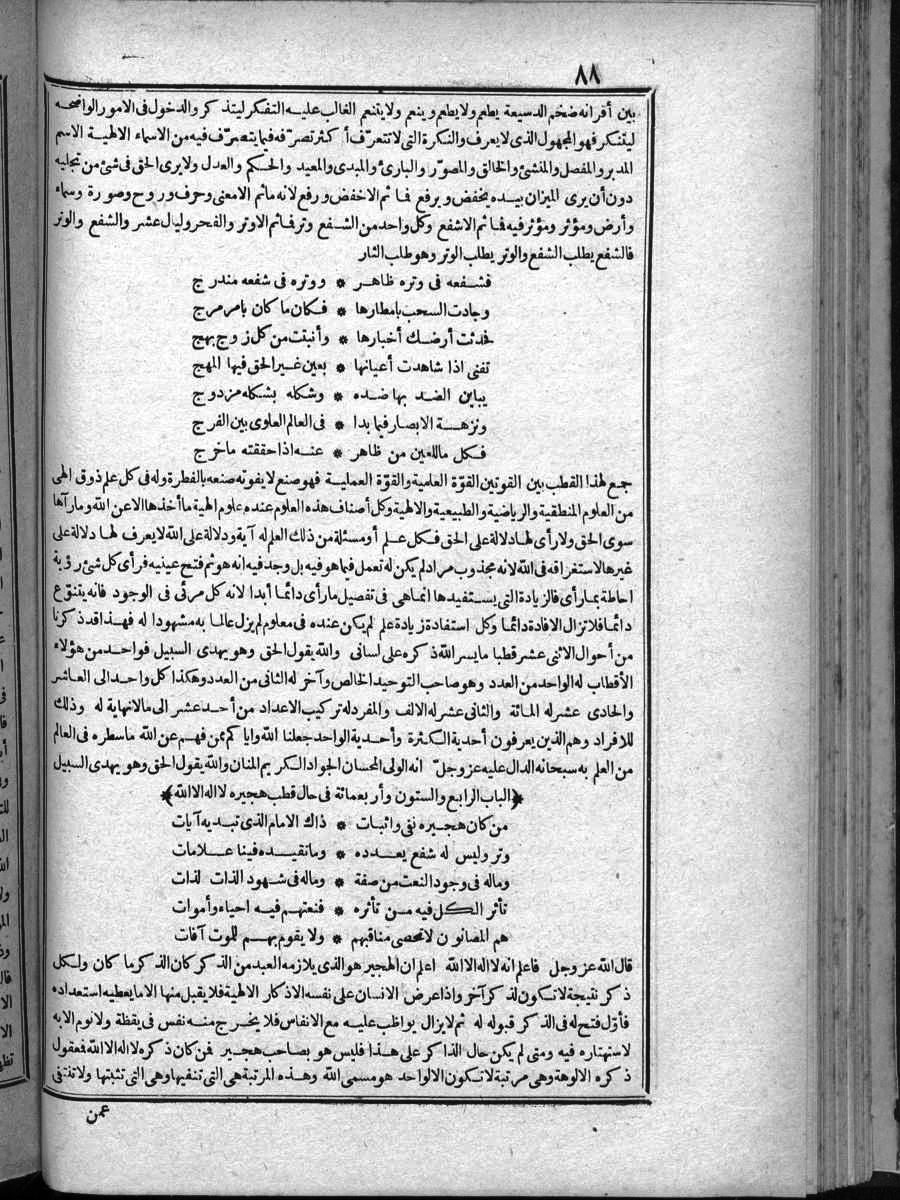 ٨٨
بين أقرانه ضخم الدسيعة يطعم ولا يطعم وينعم ولا يتنعم الغالب عليه التفكر ليتذكر والدخول فى الامور الواضحه
ليتنكر فهو المجهول الذى لا يعرف والنكرة التى لا تتعرّف أكثر تصرّفه فيما يتصرّف فيه من الاسماء الالهية الاسم
المدبر والمفصل والمنشئ والخالق والمصوّر والبارئ والمبدى والمعيد والحكم والعدل ولا يرى الحق فى شئ من تجليه
دون أن يرى الميزان بيده يخفض ويرفع فما ثم الا خفض ورفع لانه ما ثم الا معنى وحرف وروح وصورة وسماء
وأرض ومؤثر ومؤثر فيه فما ثم الا شفع وكل واحد من الشفع وتر فما ثم الا وتر والفجر وليال عشر والشفع والوتر
فالشفع يطلب الشفع والوتر يطلب الوتر وهو طلب الثار
فشفعه فى وتره ظاهر * ووتره فى شفعه مندرج
وجادت السحب بامطارها * فكان ما كان بامر مرج
فحدثت أرضك أخبارها * وأنبتت من كل زوج بهج
تفنى اذا شاهدت أعيانها * بعين غير الحق فيها المهج
يباين الضد بها ضده * وشكله بشكله مزدوج
ونزهة الابصار فيما بدا * فى العالم العلوى بين الفرج
فكل ما للعين من ظاهر * عنه اذا حققته ما خرج
جمع لهذا القطب بين القوتين القوّة العلمية والقوّة العملية فهو صنع لا يفوته صنعه بالفطرة وله فى كل علم ذوق الهى
من العلوم المنطقية والرياضية والطبيعية والالهية وكل أصناف هذه العلوم عنده علوم الهية ما أخذها الا عن الله وما رآها
سوى الحق ولا رأى لها دلالة على الحق فكل علم أو مسئلة من ذلك العلم له آية ودلالة على الله لا يعرف لها دلالة على
غيرها لاستغراقه فى الله لانه مجذوب مراد لم يكن له تعمل فيما هو فيه بل وجد فيه انه هو ثم فتح عينيه فرأى كل شئ رؤية
احاطة بما رأى فالزيادة التى يستفيدها انما هى فى تفصيل ما رأى دائما أبدا لانه كل مرئى فى الوجود فانه يتنوّع
دائما فلا تزال الافادة دائما وكل استفادة زيادة علم لم يكن عنده فى معلوم لم يزل عالما به مشهودا له فهذا قد ذكرنا
من أحوال الاثنى عشر قطبا ما يسر الله ذكره على لسانى والله يقول الحق وهو يهدى السبيل فواحد من هؤلاء
الأقطاب له الواحد من العدد وهو صاحب التوحيد الخالص وآخر له الثانى من العدد وهكذا كل واحد الى العاشر
والحادى عشر له المائة والثانى عشر له الالف والمفرد له تركيب الاعداد من أحد عشر الى ما لا نهاية له وذلك
للافراد وهم الذين يعرفون أحدية الكثرة وأحدية الواحد جعلنا الله واياكم ممن فهم عن الله ما سطره فى العالم
من العلم به سبحانه الدال عليه عز وجلّ انه الولى المحسان الجواد الكريم المنان والله يقول الحق وهو يهدى السبيل
﴿الباب الرابع والستون وأربعمائة فى حال قطب هجيره لا اله الا الله﴾
من كان هجيره نفى واثبات * ذاك الامام الذى تبديه آيات
وتر وليس له شفع يعدده * وما تقيده فينا علامات
وماله فى وجود النعت من صفة * وماله فى شهود الذات لذات
تأثر الكل فيه من تأثره * فنعتهم فيه احياء وأموات
هم المصانون لا تحصى مناقبهم * ولا يقوم بهم للموت آفات
قال الله عز وجل فاعلم انه لا اله الا الله اعلم ان الهجير هو الذى يلازمه العبد من الذكر كان الذكر ما كان ولكل
ذكر نتيجة لا تكون لذكر آخر واذا عرض الانسان على نفسه الاذكار الالهية فلا يقبل منها الا ما يعطيه استعداده
فأوّل فتح له فى الذكر قبوله له ثم لا يزال يواظب عليه مع الانفاس فلا يخرج منه نفس فى يقظة ولا نوم الا به
لاستهتاره فيه ومتى لم يكن حال الذاكر على هذا فليس هو بصاحب هجير فمن كان ذكره لا اله الا الله فمعقول
ذكره الالوهة وهى مرتبة لا تكون الا لواحد هو مسمى الله وهذه المرتبة هى التى تنفيها وهى التى تثبتها ولا تنتفى
عمن